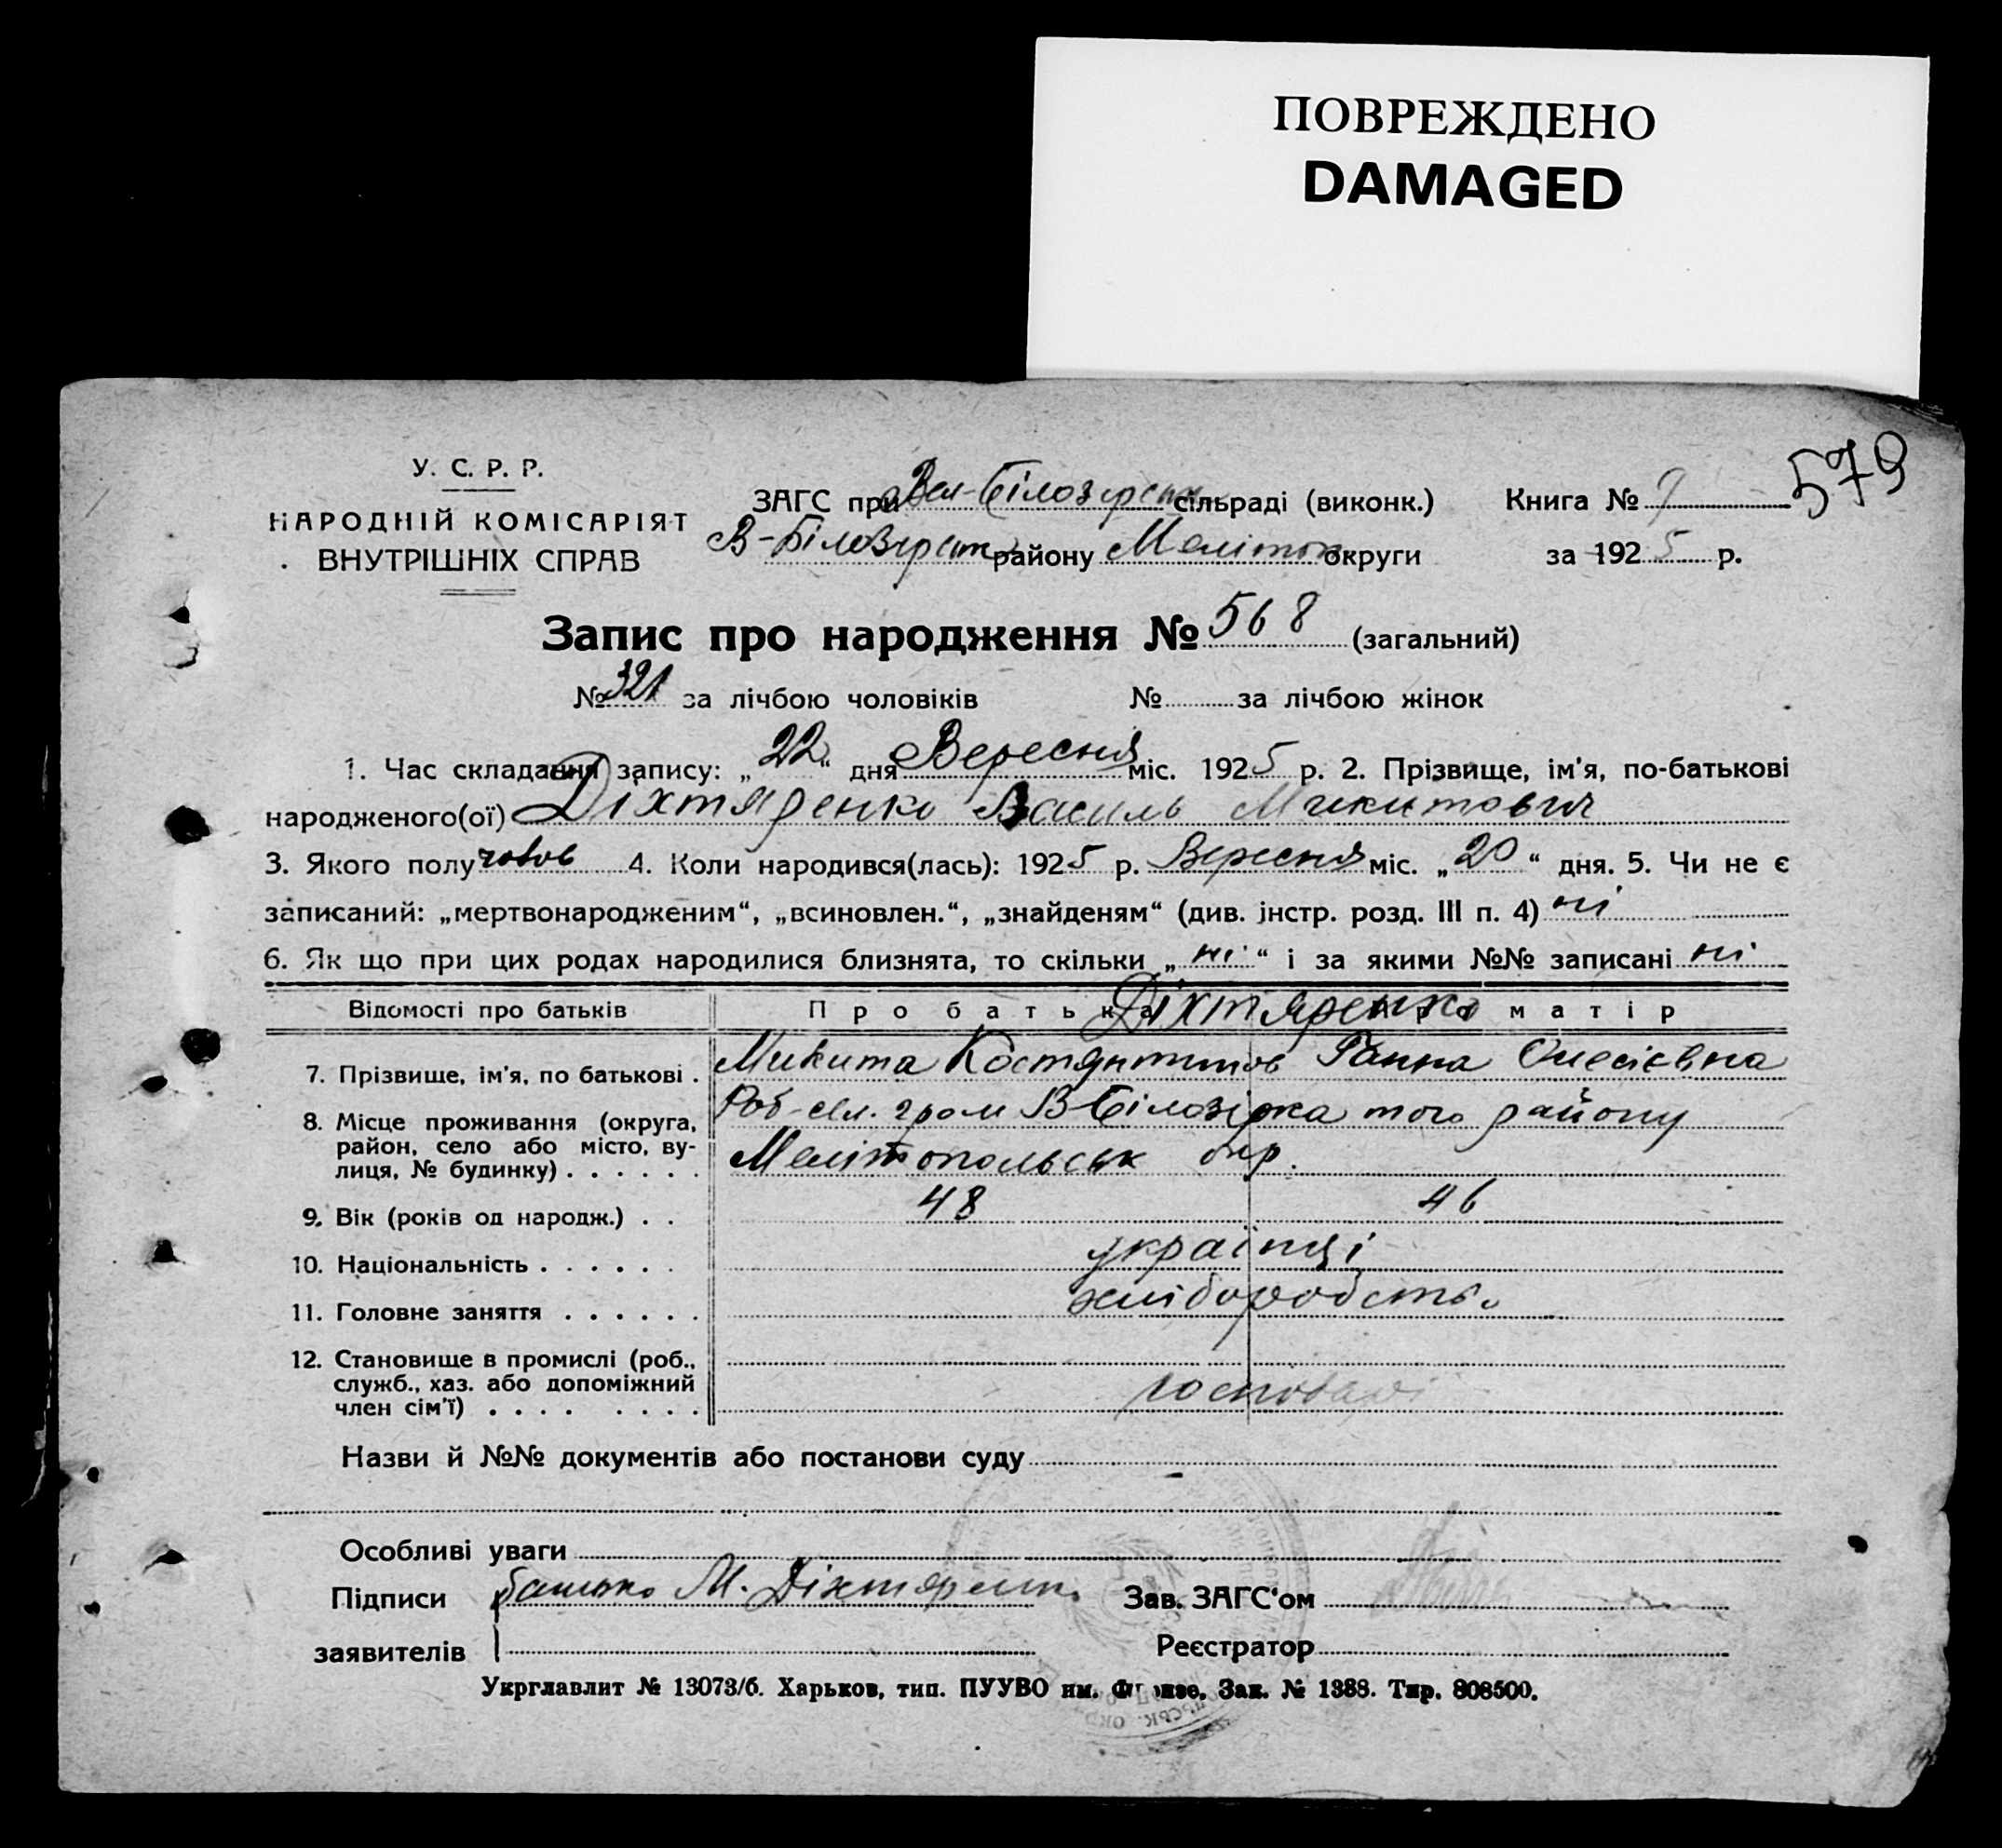 ПОВРЕЖДЕНО
DAMAGED
579
У. С. Р. Р.
НАРОДНІЙ КОМІСАРІЯТ
ВНУТРІШНІХ СПРАВ
ЗАГС при Вел-Білозерськ сільраді (виконк.) Книга №
В-Білозерськ району Мелітоп округи за 1925 р.
Запис про народження № 568 (загальний)
№ 321 за лічбою чоловіків № за лічбою жінок
1. Час складання запису: „22“ дня Вересня міс. 1925 р. 2. Прізвище, ім'я, по-батькові
народженого(ої) Діхтяренко Василь Микитович
3. Якого полу чолов 4. Коли народився(лась): 1925 р. Вересня міс. „20“ дня. 5. Чи не є
записаний: „мертвонародженим“, „всиновлен.“, „знайденям“ (див. інстр. розд. III п. 4) ні
6. Як що при цих родах народилися близнята, то скільки „ні“ і за якими №№ записані ні
Відомості про батьків Про батька Діхтяренко Про матір
7. Прізвище, ім'я, по батькові . Микита Костянтинов Ганна Олесієвна
8. Місце проживання (округа, район, село або місто, вулиця, № будинку) . . . . . . Роб-сел. гром В Білозірка того району
Мелітопольськ окр.
9. Вік (років од народж.) . . 48 46
10. Національність . . . . . . українці
11. Головне заняття . . . . . . хліборобств.
12. Становище в промислі (роб., служб., хаз. або допоміжний член сім'ї) . . . . . . . . господарі
Назви й №№ документів або постанови суду
Особливі уваги
Підписи батько М. Діхтяренко Зав. ЗАГС'ом
заявителів Реєстратор
Укрглавлит № 13073/б. Харьков, тип. ПУУВО им. Фрунзе. Зак. № 1388. Тир. 808500.